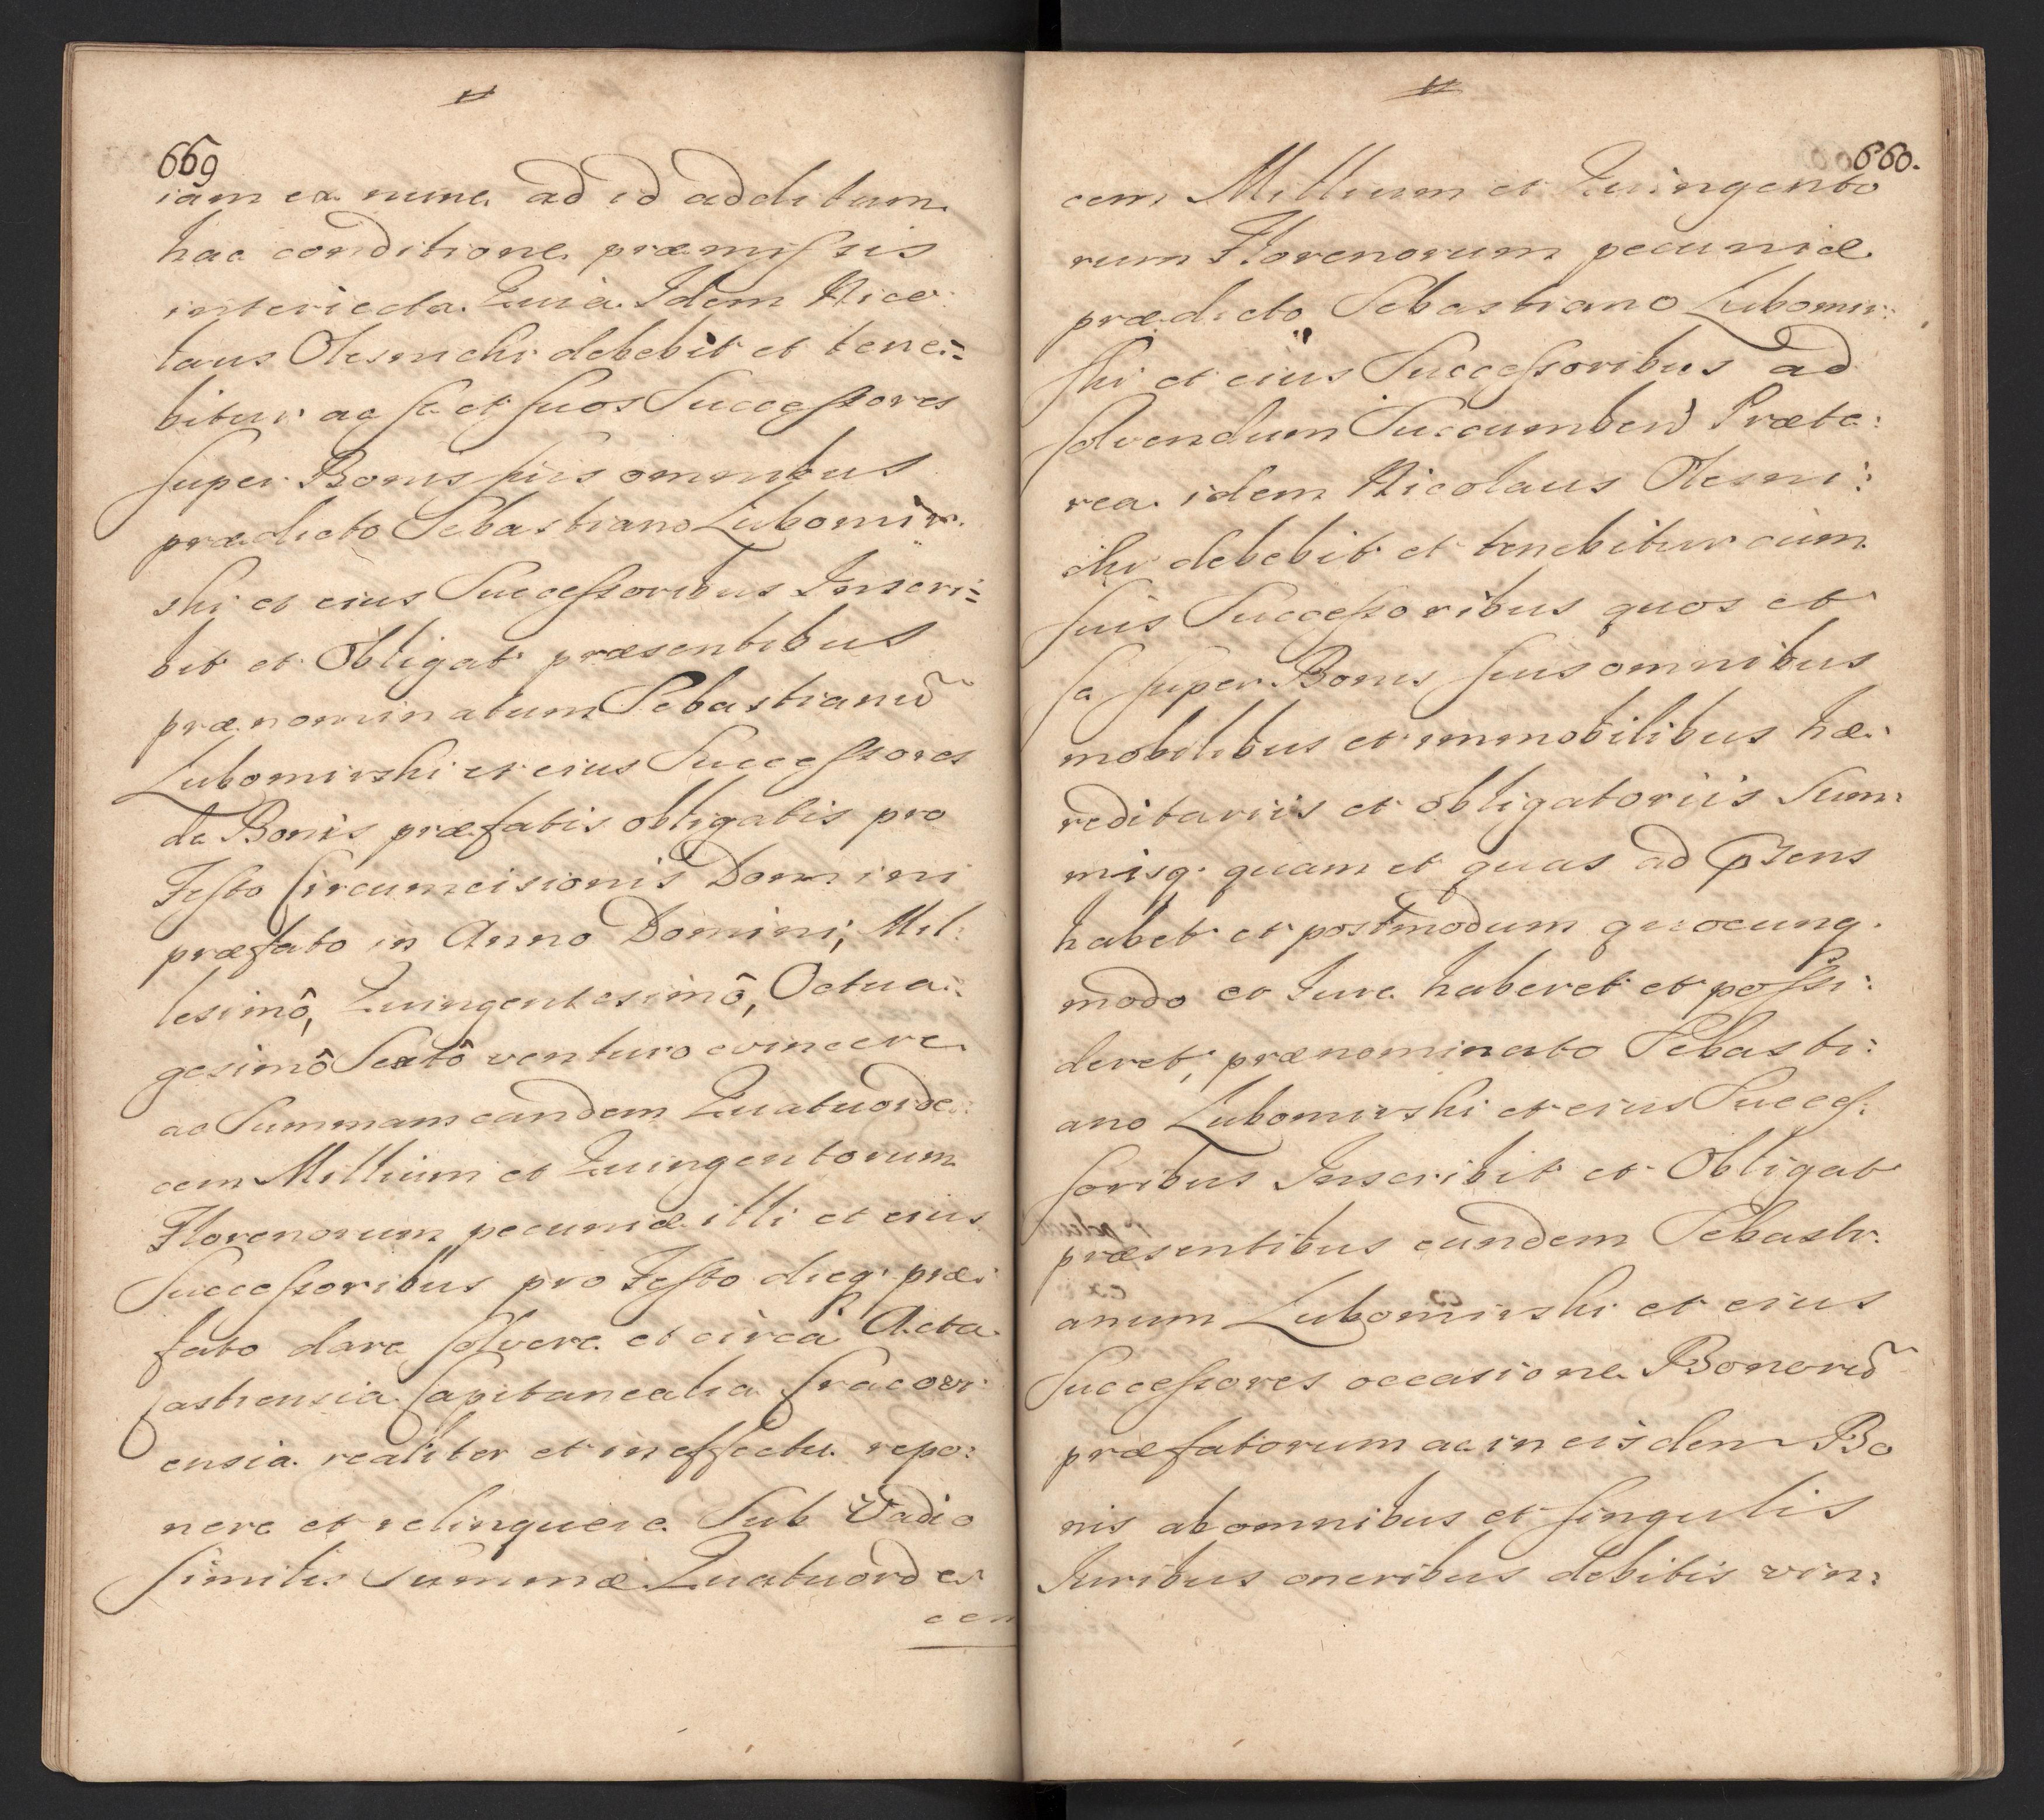 669
iam ex nunc ad id additum
hac conditione præmissis
interiecta. Quia Idem Nico:
laus Olesnicki debebit et tene:
bitur ac se et suos Successores
super Bonis suis omnibus
prædicto Sebastiano Lubomir:
ski et eius Successoribus Inscri:
bit et Obligat præsentibus
prænominatum Sebastianũ
Lubomirski et eius Successores
de Bonis præfatis obligatis pro
Festo Circumcisionis Domini
præfato in Anno Domini, Mil:
lesimô, Quingentesimô, Octua:
gesimô Sextô venturo evincere
ac Summam eandem Quatuorde:
cem Millium et Quingentorum
Florenorum pecuniæ illi et eius
Successoribus pro Festo dieq. præ:
fato dare solvere et circa Acta
Castrensia Capitanealia Cracovi
ensia realiter et in effectu repo:
nere et relinquere Sub Vadio
similis Summæ Quatuorde
cem
660.
cem Millium et Quingento
rum Florenorum pecuniæ
prædicto Sebastiano Lubomir:
ski et eius Successoribus ad
solvendum Succumben̄ Præte:
rea idem Nicolaus Olesni:
cki debebit et tenebitur cum
suis Successoribus quos et
se super Bonis suis omnibus
mobilibus et immobilibus hæ:
reditariis et obligatoriis Sum:
misq. quam et quas ad p̄sens
habet et postmodum quocunq.
modo et Iure haberet et possi:
deret, prænominato Sebasti:
ano Lubomirski et eius Succes:
soribus Inscribit et Obligat
præsentibus eundem Sebasti:
anum Lubomirski et eius
Successores occasione Bonorũ
præfatorum ac in eisdem Bo
nis ab omnibus et singulis
Iuribus oneribus debitis vin: